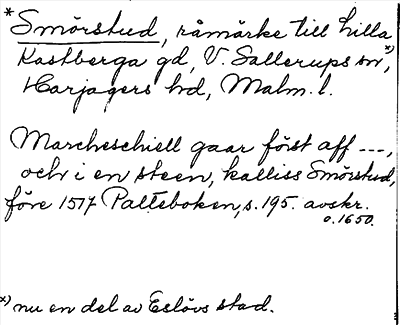 * Smörstud, råmärke till Lilla
Kastberga gd, V. Sallerups sn *),
Harjagers hd, Malm. l.
Marcheschiell gaar först aff ---,
och i en steen, kalliss Smörstud,
före 1517 Palteboken, s. 195. avskr.
o. 1650.
*) nu en del av Eslövs stad.